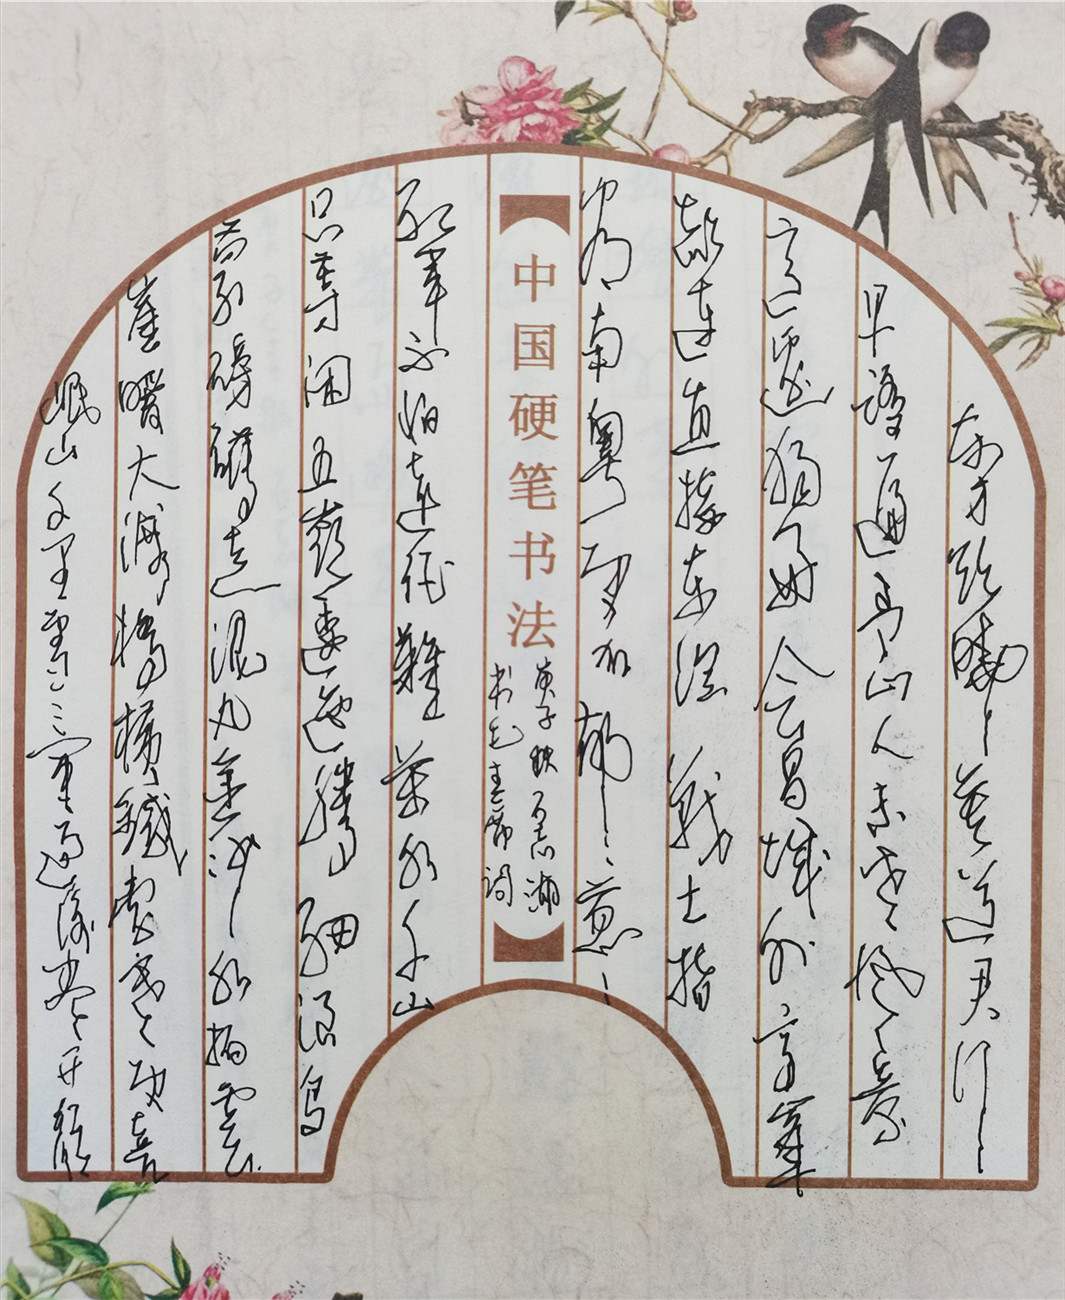 东方欲晓莫道君行
早踏遍青山人未老风景
这边独好会昌城外高峰
颠连直接东溟战士指
看南粤更加郁郁葱葱
中国硬笔书法
庚子秋
书毛主席词
红军不怕远征難萬水千山
只等闲五嶺逶迤腾细浪乌
蒙磅礴走泥丸金沙水拍雲
崖暖大渡橋横鐵索寒更喜
岷山千里雪三军过後尽开颜